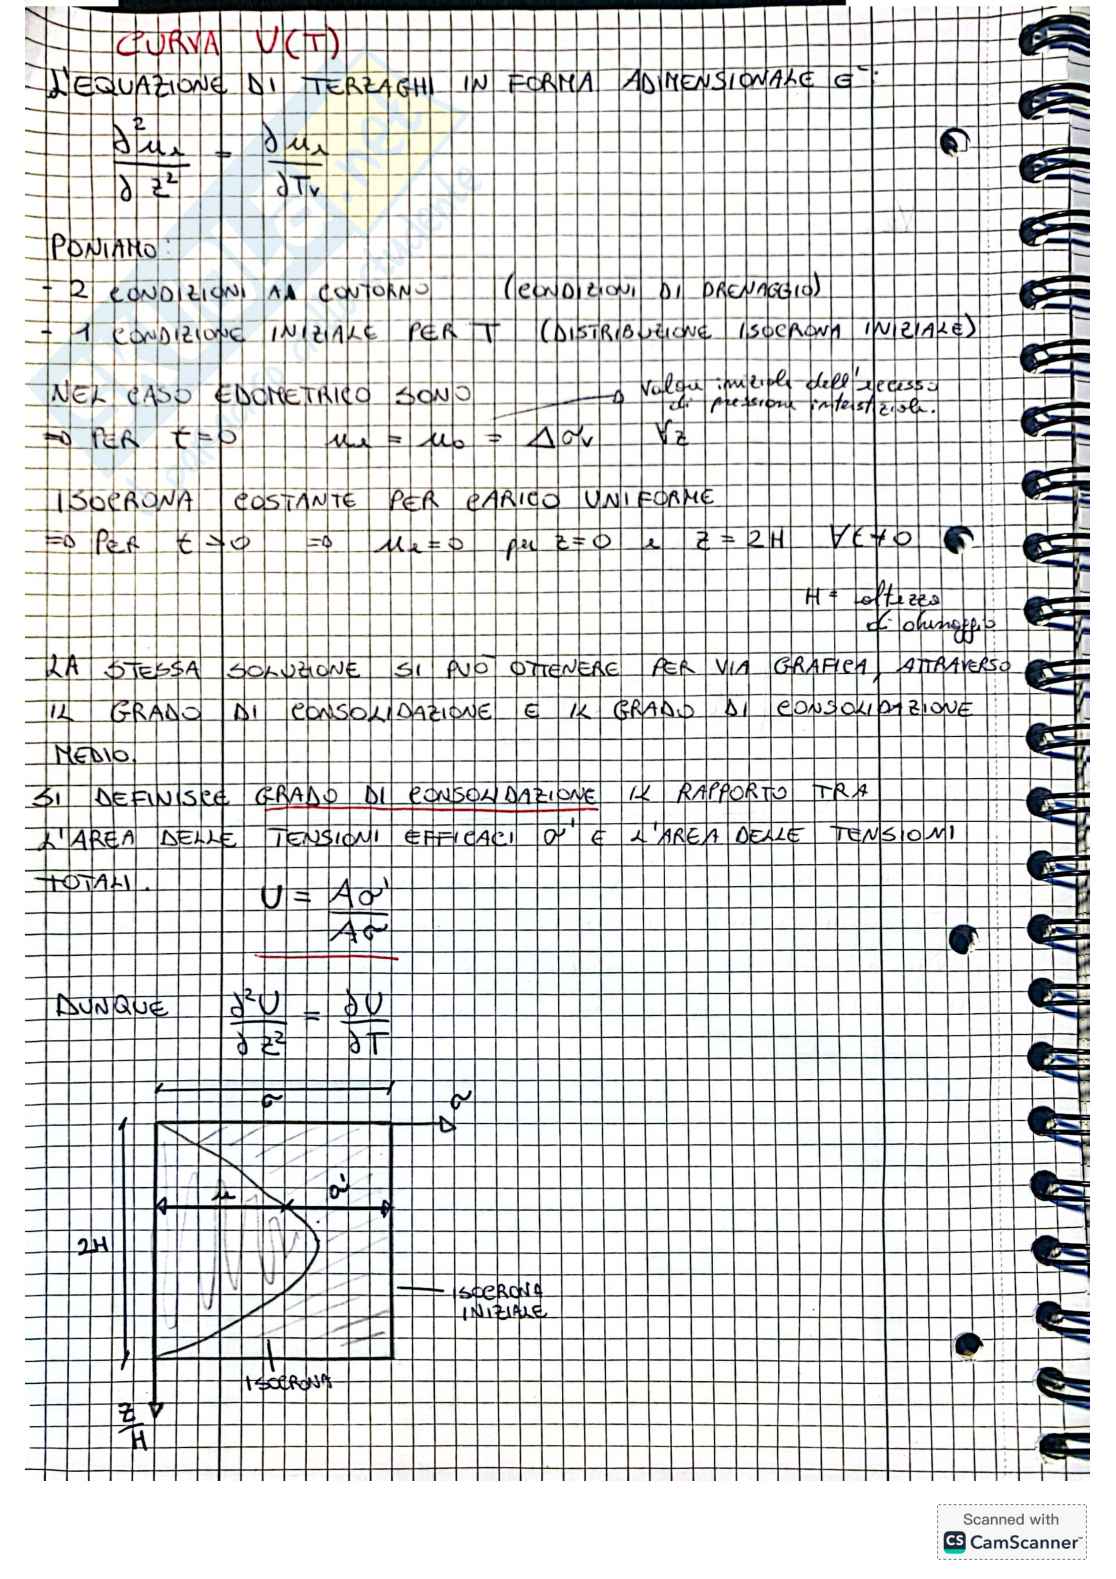 CURVA U(T)
L'EQUAZIONE DI TERZAGHI IN FORMA ADIMENSIONALE E':
∂²ue/∂z² = ∂ue/∂Tv
PONIAMO:
- 2 CONDIZIONI AL CONTORNO (CONDIZIONI DI DRENAGGIO)
- 1 CONDIZIONE INIZIALE PER T (DISTRIBUZIONE ISOCRONA INIZIALE)
NEL CASO EDOMETRICO SONO
Valore iniziale dell'eccesso
di pressione interstiziale.
=> PER t=0 ue = uo = Δσv ∀z
ISOCRONA COSTANTE PER CARICO UNIFORME
=> PER t>0 => ue=0 per z=0 e z=2H ∀t≠0
H = altezza
di drenaggio
LA STESSA SOLUZIONE SI PUÒ OTTENERE PER VIA GRAFICA, ATTRAVERSO
IL GRADO DI CONSOLIDAZIONE E IL GRADO DI CONSOLIDAZIONE
MEDIO.
SI DEFINISCE GRADO DI CONSOLIDAZIONE IL RAPPORTO TRA
L'AREA DELLE TENSIONI EFFICACI σ' E L'AREA DELLE TENSIONI
TOTALI.
U = Aσ'/Aσ
DUNQUE ∂²U/∂z² = ∂U/∂T
σ
σ
u σ'
2H
ISOCRONA
INIZIALE
ISOCRONA
Z/H
Scanned with
CS CamScanner